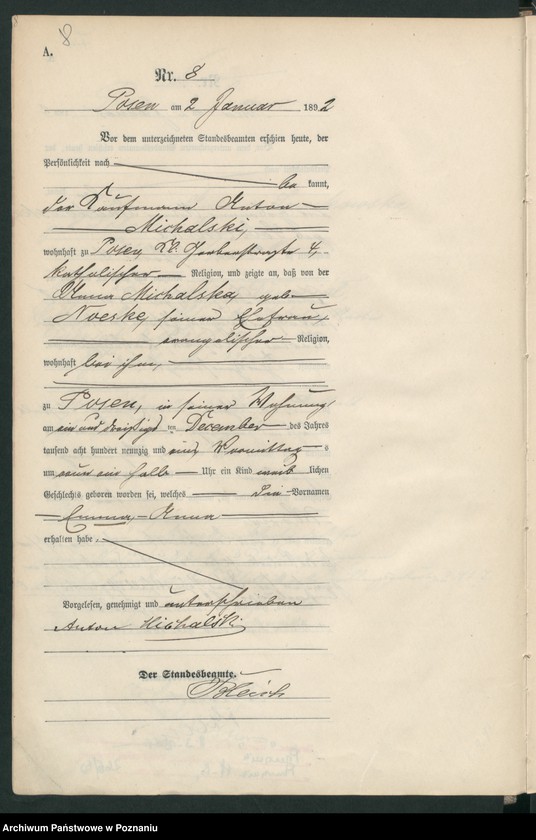 8
A.
Nr. 8
Posen am 2 Januar 1892
Vor dem unterzeichneten Standesbeamten erschien heute, der
Persönlichkeit nach
be kannt,
der Kaufmann Anton
Michalski,
wohnhaft zu Posen, Kl. Gerberstraße 4,
katholischer Religion, und zeigte an, daß von der
Anna Michalska, geb.
Noeske, seiner Ehefrau,
evangelischer Religion,
wohnhaft bei ihm,
zu Posen, in seiner Wohnung
am ein und dreißigsten December des Jahres
tausend acht hundert neunzig und eins Vormittag s
um neun ein halb Uhr ein Kind weib lichen
Geschlechts geboren worden sei, welches die Vornamen
Emma, Anna
erhalten habe.
Vorgelesen, genehmigt und unterschrieben
Anton Michalski
Der Standesbeamte.
Archiwum Państwowe w Poznaniu